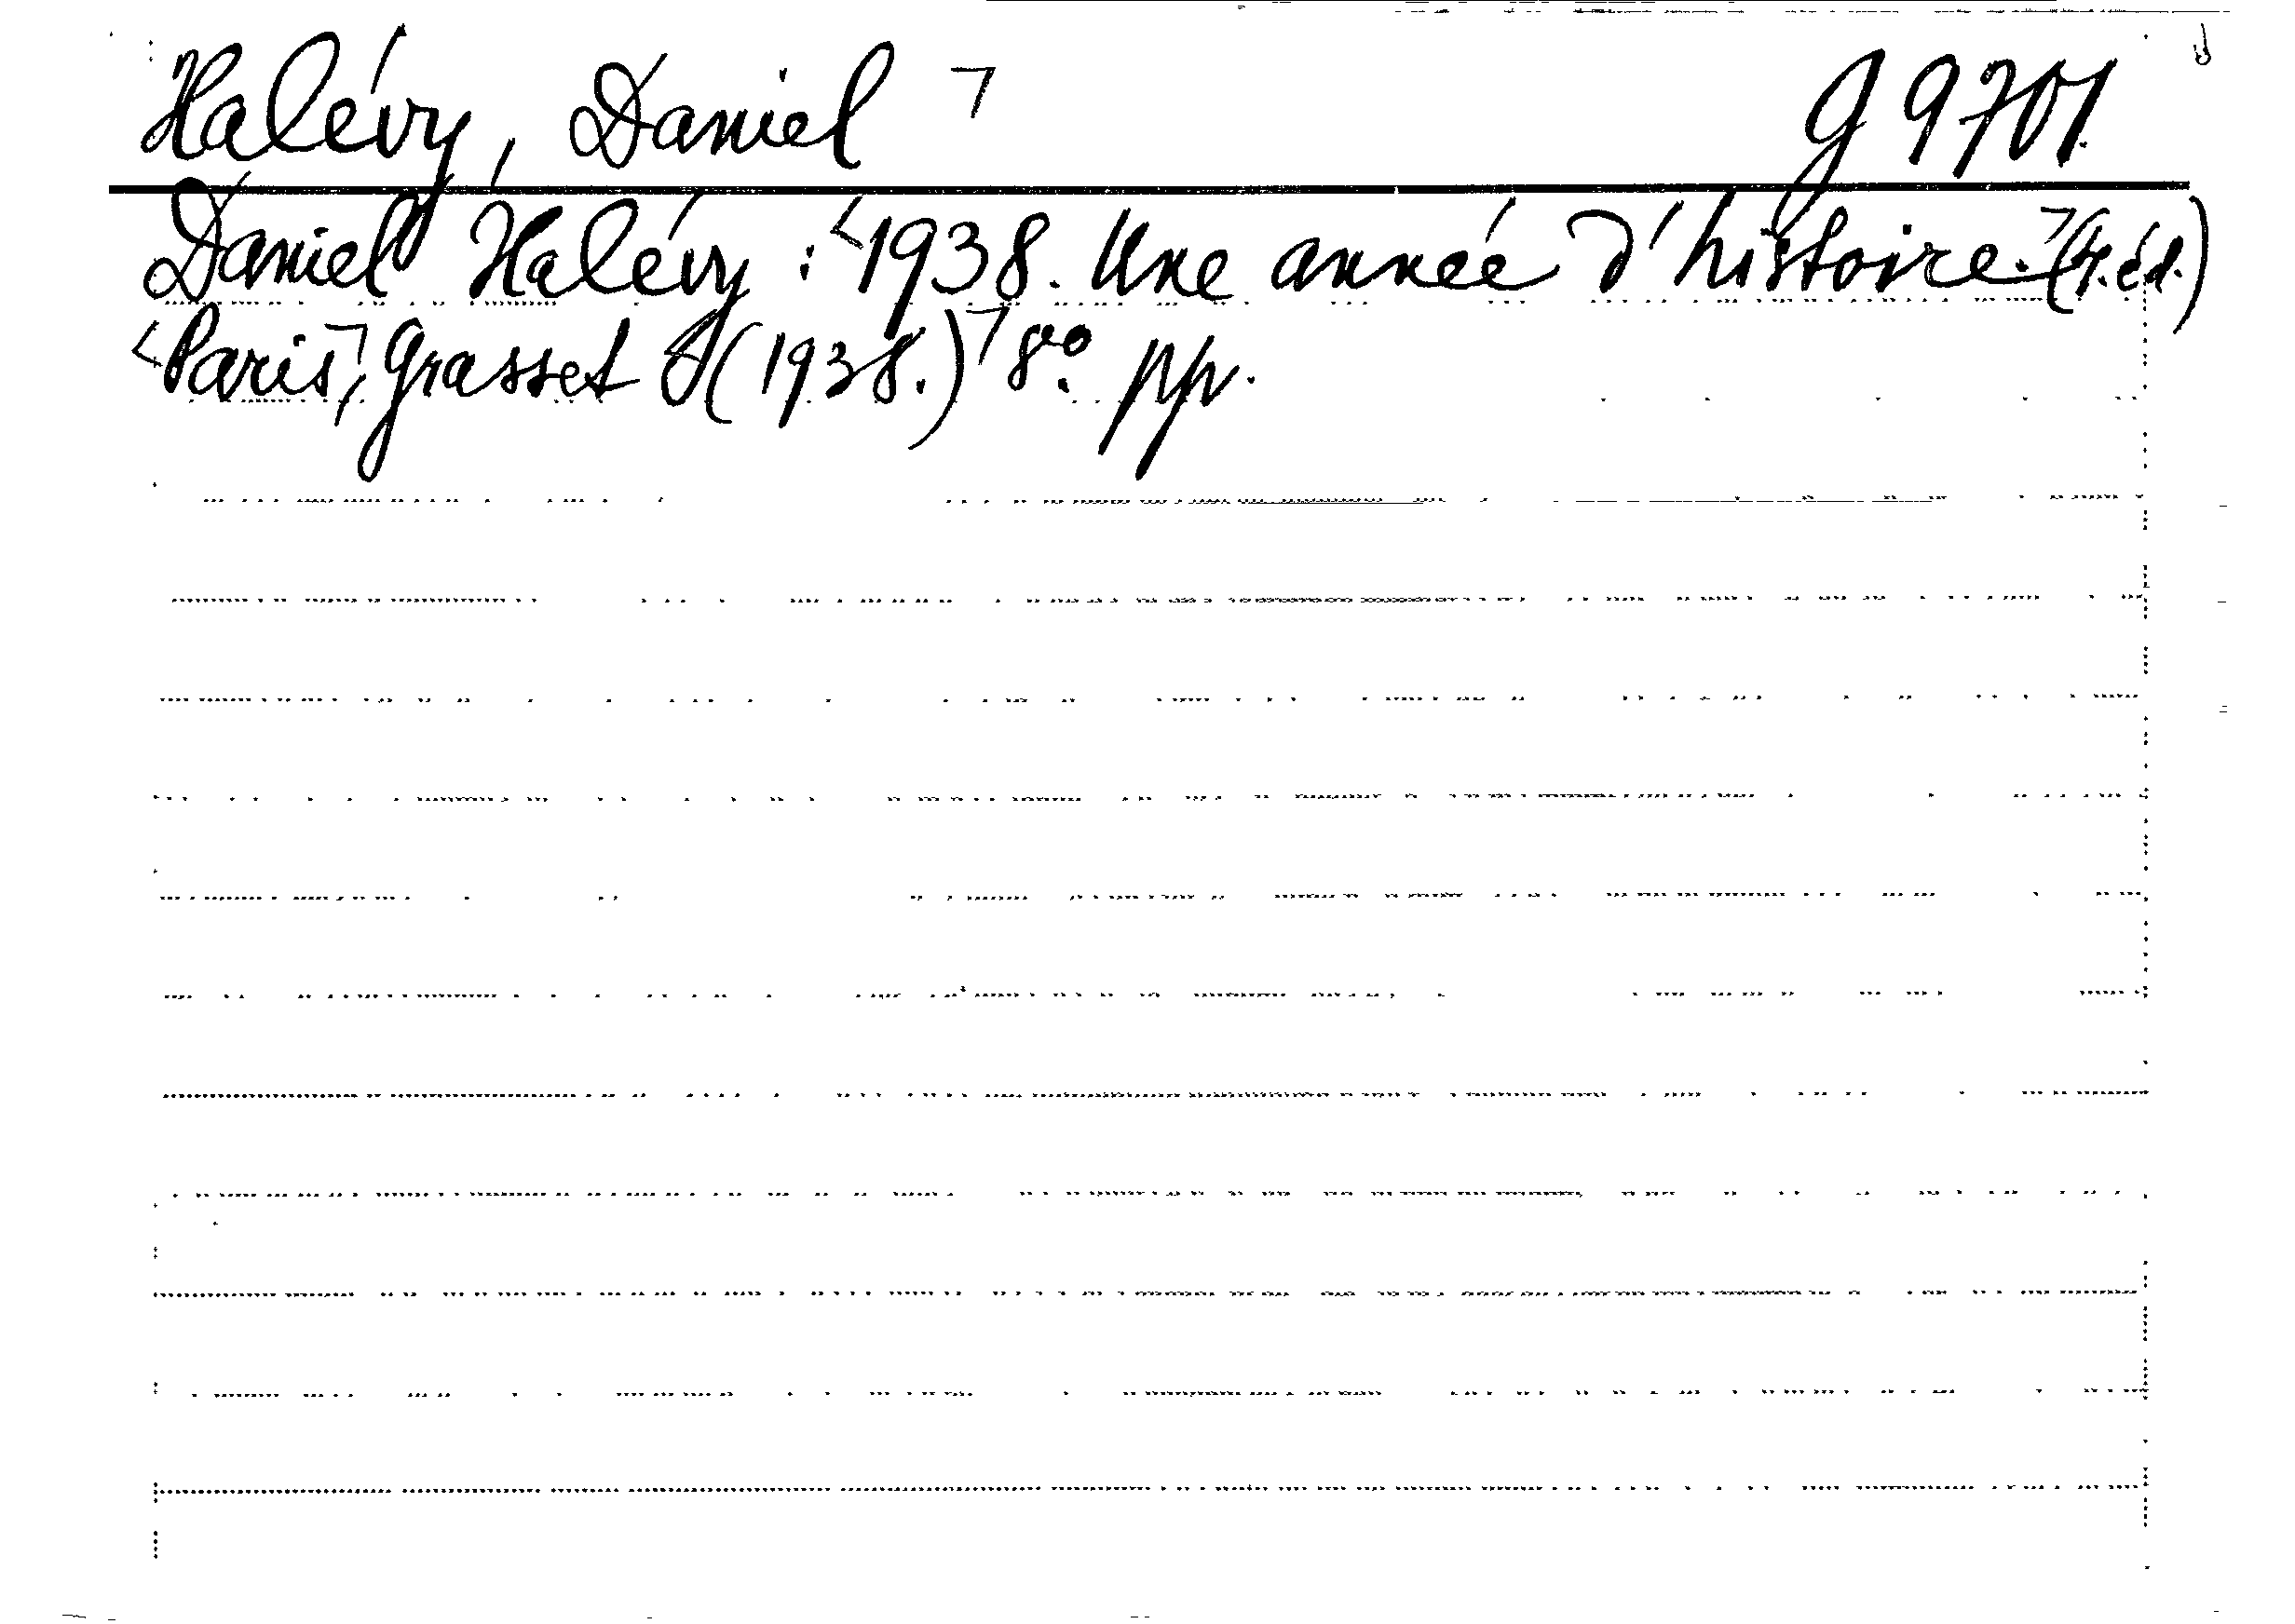 Halévy, Daniel ┐ G 9701
Daniel Halévy : <1938. Une année d'histoire.┐ (4.éd.)
<Paris,┐ Grasset (1938.)┐ 8vo. pp.